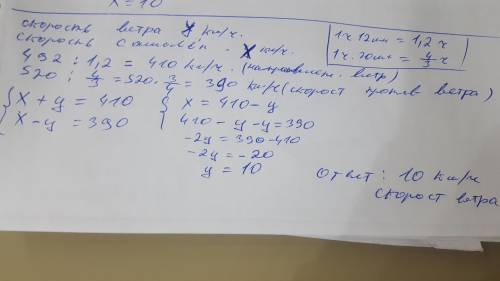 x = 10
скорость ветра y км/ч.
скорость самолёт - x км/ч.
1ч 12мин = 1,2 ч
1ч. 20мин = 4/3 ч
492 : 1,2 = 410 км/ч. (направлен. ветр)
520 : 4/3 = 520 · 3/4 = 390 км/ч (скорост против ветра)
{ x + y = 410
x - y = 390
{ x = 410 - y
410 - y - y = 390
-2y = 390 - 410
-2y = -20
y = 10
Ответ: 10 км/ч
скорост ветра